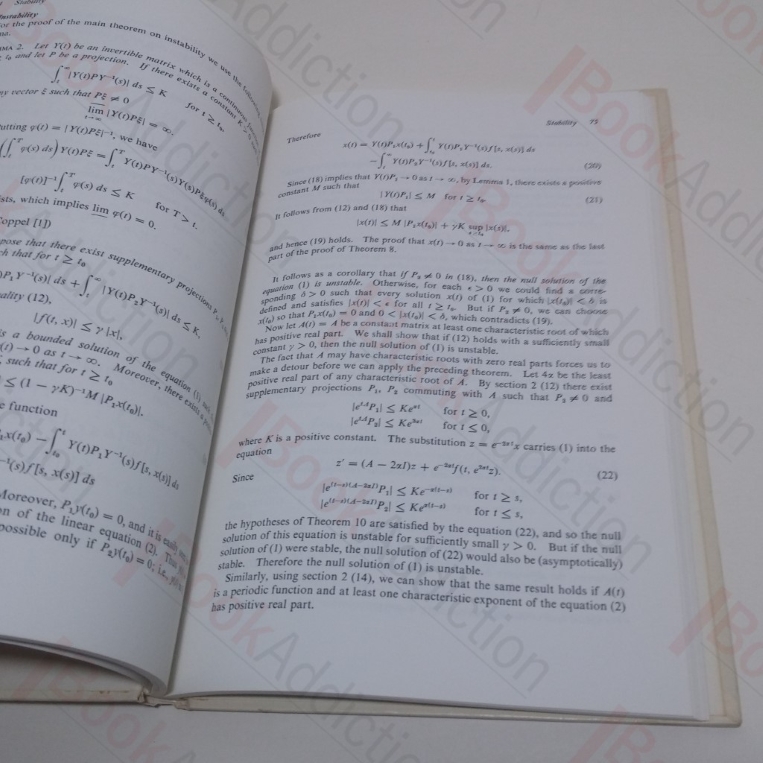 Stability
Instability
for the proof of the main theorem on instability we use the following
2. Let Y(t) be an invertible matrix which is a continuous
t₀ and let P be a projection. If there exists a constant K
∫ |Y(t)PY⁻¹(s)| ds ≤ K for t ≥ t₀
ny vector ξ such that Pξ ≠ 0
lim |Y(t)Pξ| = ∞.
t→∞
utting φ(t) = |Y(t)Pξ|⁻¹, we have
(∫ φ(s) ds) Y(t)Pξ = ∫ Y(t)PY⁻¹(s)Y(s)Pξφ(s) ds
[φ(t)]⁻¹ ∫ φ(s) ds ≤ K for T > t.
sts, which implies lim φ(t) = 0.
Coppel [1])
pose that there exist supplementary projections
ch that for t ≥ t₀
)P₁Y⁻¹(s)| ds + ∫ |Y(t)P₂Y⁻¹(s)| ds ≤ K.
ality (12),
|f(t, x)| ≤ γ |x|,
is a bounded solution of the equation (1)
(t) → 0 as t → ∞. Moreover, there exists
such that for t ≥ t₀
≤ (1 − γK)⁻¹M |P₁x(t₀)|.
e function
x(t₀) − ∫ Y(t)P₁Y⁻¹(s)f[s, x(s)] ds
⁻¹(s)f[s, x(s)] ds
Moreover, P₁y(t₀) = 0, and it is easily
on of the linear equation (2).
possible only if P₂y(t₀) = 0; i.e.,
Stability 75
Therefore
x(t) = Y(t)P₁x(t₀) + ∫ Y(t)P₁Y⁻¹(s)f[s, x(s)] ds
− ∫ Y(t)P₂Y⁻¹(s)f[s, x(s)] ds. (20)
Since (18) implies that Y(t)P₁ → 0 as t → ∞, by Lemma 1, there exists a positive
constant M such that
|Y(t)P₁| ≤ M for t ≥ t₀. (21)
It follows from (12) and (18) that
|x(t)| ≤ M |P₁x(t₀)| + γK sup |x(s)|,
and hence (19) holds. The proof that x(t) → 0 as t → ∞ is the same as the last
part of the proof of Theorem 8.
It follows as a corollary that if P₂ ≠ 0 in (18), then the null solution of the
equation (1) is unstable. Otherwise, for each ε > 0 we could find a corre-
sponding δ > 0 such that every solution x(t) of (1) for which |x(t₀)| < δ is
defined and satisfies |x(t)| < ε for all t ≥ t₀. But if P₂ ≠ 0, we can choose
x(t₀) so that P₁x(t₀) = 0 and 0 < |x(t₀)| < δ, which contradicts (19).
Now let A(t) = A be a constant matrix at least one characteristic root of which
has positive real part. We shall show that if (12) holds with a sufficiently small
constant γ > 0, then the null solution of (1) is unstable.
The fact that A may have characteristic roots with zero real parts forces us to
make a detour before we can apply the preceding theorem. Let 4α be the least
positive real part of any characteristic root of A. By section 2 (12) there exist
supplementary projections P₁, P₂ commuting with A such that P₂ ≠ 0 and
|eᵗᴬP₁| ≤ Keᵅᵗ for t ≥ 0,
|eᵗᴬP₂| ≤ Ke³ᵅᵗ for t ≤ 0,
where K is a positive constant. The substitution z = e⁻²ᵅᵗx carries (1) into the
equation
z′ = (A − 2αI)z + e⁻²ᵅᵗf(t, e²ᵅᵗz). (22)
Since
|e⁽ᵗ⁻ˢ⁾⁽ᴬ⁻²ᵅᴵ⁾P₁| ≤ Ke⁻ᵅ⁽ᵗ⁻ˢ⁾ for t ≥ s,
|e⁽ᵗ⁻ˢ⁾⁽ᴬ⁻²ᵅᴵ⁾P₂| ≤ Keᵅ⁽ᵗ⁻ˢ⁾ for t ≤ s,
the hypotheses of Theorem 10 are satisfied by the equation (22), and so the null
solution of this equation is unstable for sufficiently small γ > 0. But if the null
solution of (1) were stable, the null solution of (22) would also be (asymptotically)
stable. Therefore the null solution of (1) is unstable.
Similarly, using section 2 (14), we can show that the same result holds if A(t)
is a periodic function and at least one characteristic exponent of the equation (2)
has positive real part.
BookAddiction